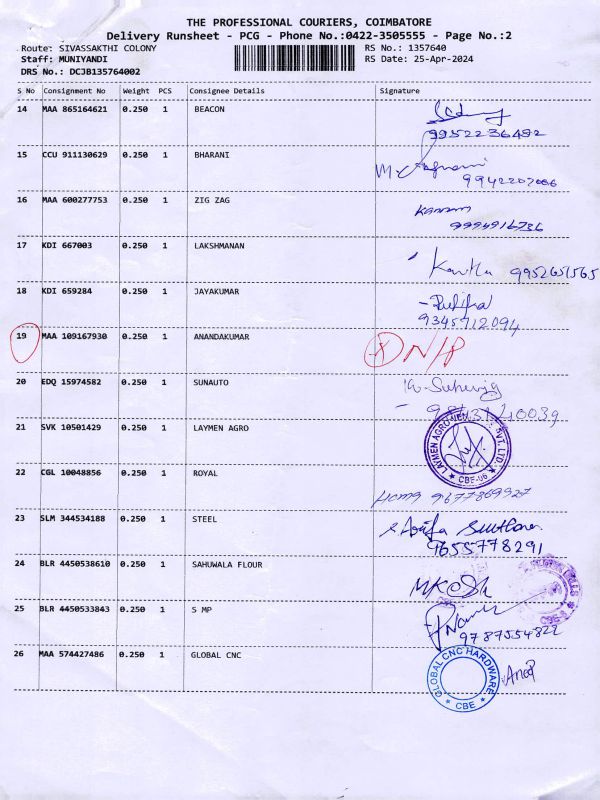 THE PROFESSIONAL COURIERS, COIMBATORE
Delivery Runsheet - PCG - Phone No.:0422-3505555 - Page No.:2
Route: SIVASSAKTHI COLONY RS No.: 1357640
Staff: MUNIYANDI RS Date: 25-Apr-2024
DRS No.: DCJB135764002
S No Consignment No Weight PCS Consignee Details Signature
14 MAA 865164621 0.250 1 BEACON
9952236492
15 CCU 911130629 0.250 1 BHARANI
16 MAA 600277753 0.250 1 ZIG ZAG
17 KDI 667003 0.250 1 LAKSHMANAN
9952651565
18 KDI 659284 0.250 1 JAYAKUMAR
9345712094
19 MAA 109167930 0.250 1 ANANDAKUMAR
20 EDQ 15974582 0.250 1 SUNAUTO
21 SVK 10501429 0.250 1 LAYMEN AGRO
LAYMEN AGRO PVT. LTD. CBE-06
22 CGL 10048856 0.250 1 ROYAL
9677869927
23 SLM 344534188 0.250 1 STEEL
9655778291
24 BLR 4450538610 0.250 1 SAHUWALA FLOUR
25 BLR 4450533843 0.250 1 S MP
9787554822
26 MAA 574427486 0.250 1 GLOBAL CNC
GLOBAL CNC HARDWARE CBE